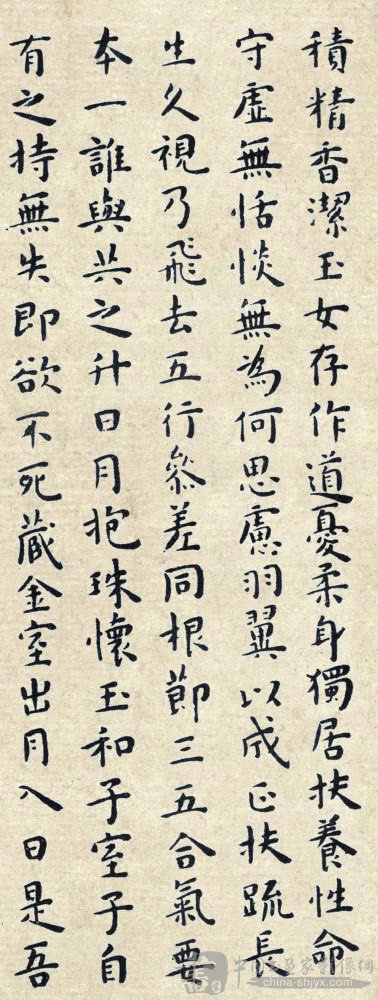 積精香潔玉女存作道憂柔身獨居扶養性命
守虛無恬惔無為何思慮羽翼以成正扶疏長
生久視乃飛去五行參差同根節三五合氣要
本一誰與共之升日月抱珠懷玉和子室子自
有之持無失即欲不死藏金室出月入日是吾
china-shjyx.com